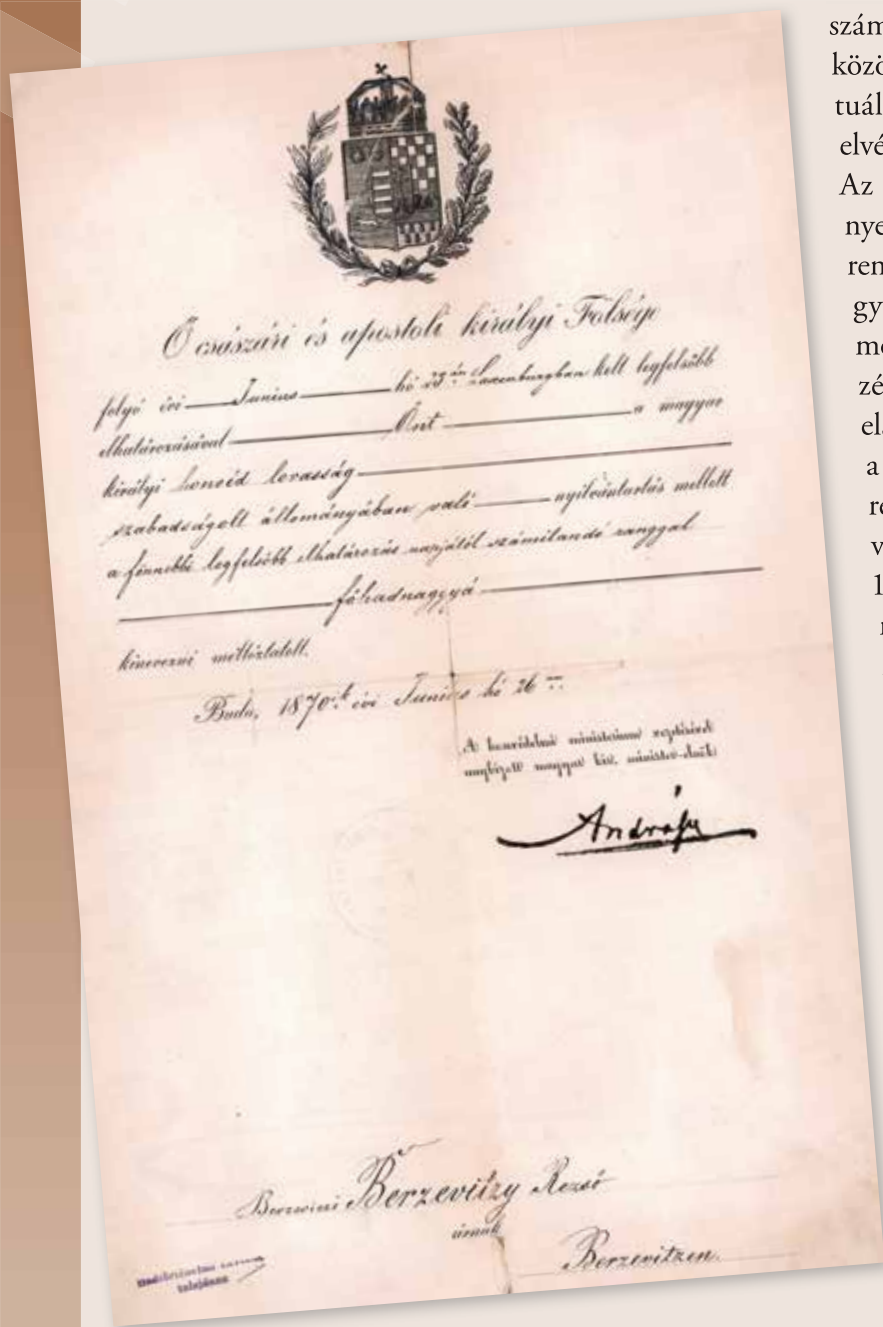 Ő császári és apostoli királyi Fölsége
folyó évi Junius hó 23án Laxenburgban kelt legfelsőbb
elhatározásával Önt a magyar
királyi honvéd lovasság
szabadságolt állományában való nyilvántartás mellett
a fönnebbi legfelsőbb elhatározás napjától számitandó ranggal
főhadnagygyá
kinevezni méltóztatott.
Buda, 1870ik évi Junius hó 26án.
A honvédelmi ministerium vezetésével
megbizott magyar kir. minister-elnök
Andrássy
Berzevitzy Rezső
úrnak
Berzevitzen.
szám
közö
tuál
elvé
Az
nye
ren
gy
me
zé
els
a
re
v
1